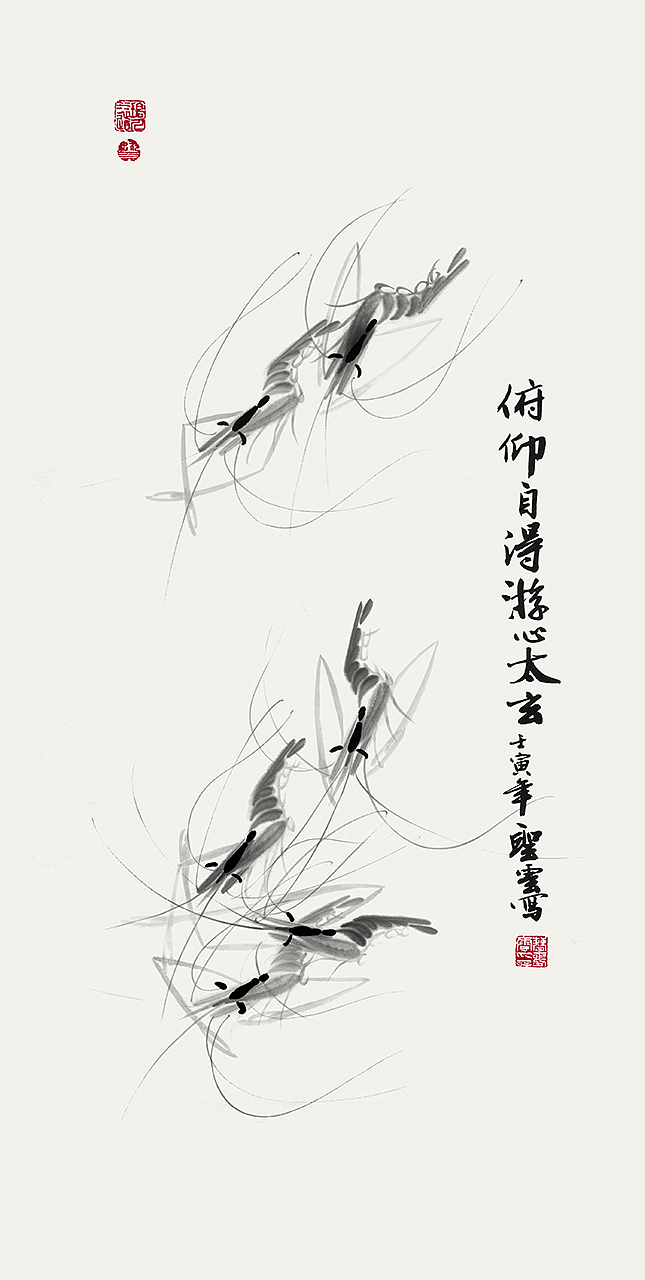 俯仰自得游心太玄壬寅年聖雲寫